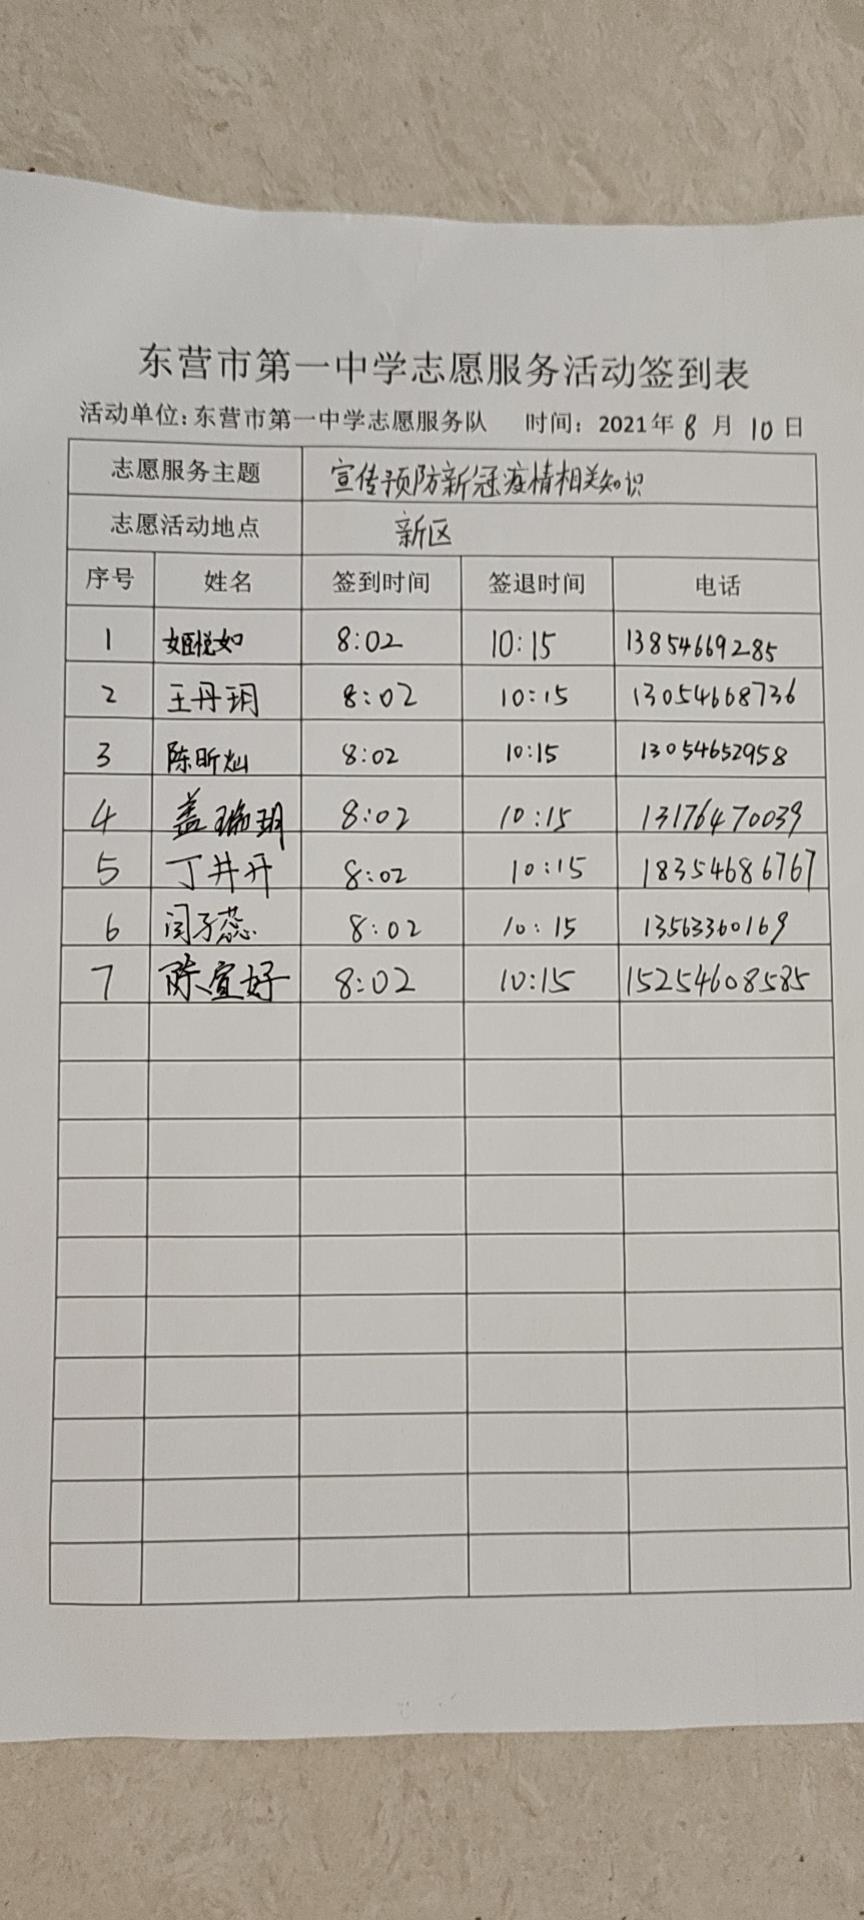 东营市第一中学志愿服务活动签到表
活动单位:东营市第一中学志愿服务队 时间：2021年8月10日
志愿服务主题 宣传预防新冠疫情相关知识
志愿活动地点 新区
序号 姓名 签到时间 签退时间 电话
1 姬悦如 8:02 10:15 13854669285
2 王丹玥 8:02 10:15 13054668736
3 陈昕灿 8:02 10:15 13054652958
4 盖瑞玥 8:02 10:15 13176470039
5 丁井开 8:02 10:15 18354686767
6 闫子蕊 8:02 10:15 13563360169
7 陈宣好 8:02 10:15 15254608585